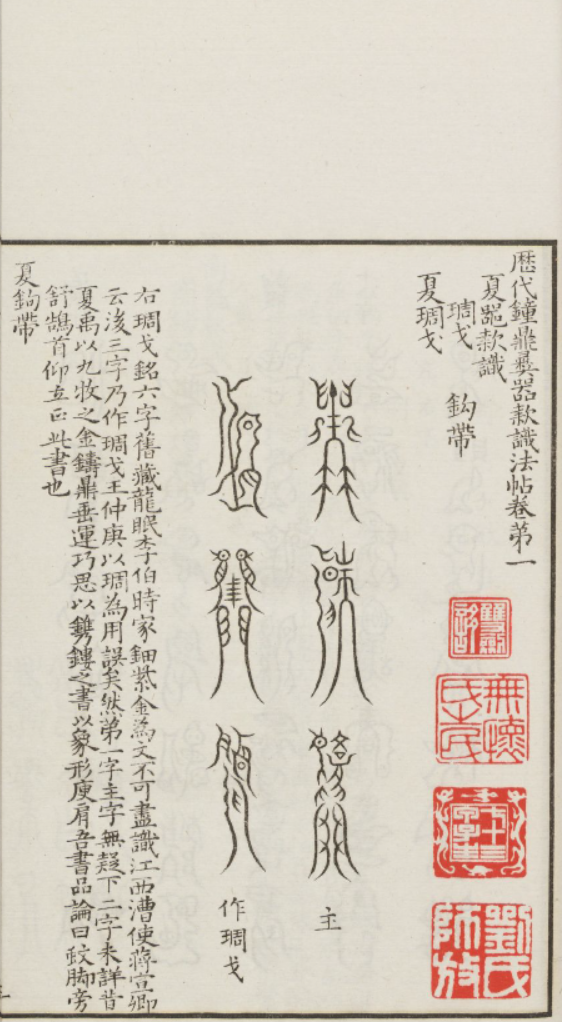 歷代鐘鼎彝器款識法帖卷第一
夏器款識
琱戈
鈎帶
夏琱戈
主
作琱戈
右琱戈銘六字舊藏龍眠李伯時家鈿紫金為文不可盡識江西漕使蔣宣卿
云後三字乃作琱戈王仲庚以琱為用誤矣然第一字主字無疑下二字未詳昔
夏禹以九牧之金鑄鼎垂運巧思以鐫鏤之書以象形庾肩吾書品論曰蚊脚旁
舒鵠首仰立正此書也
夏鈎帶
無懷氏民
劉氏師放